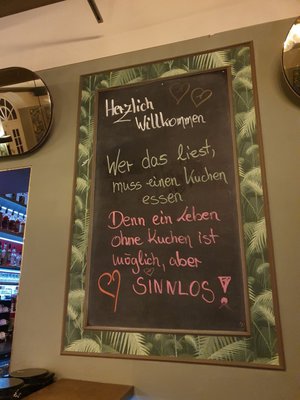 Herzlich
Willkommen
Wer das liest,
muss einen Kuchen
essen
Denn ein Leben
ohne Kuchen ist
möglich, aber
SINNLOS!